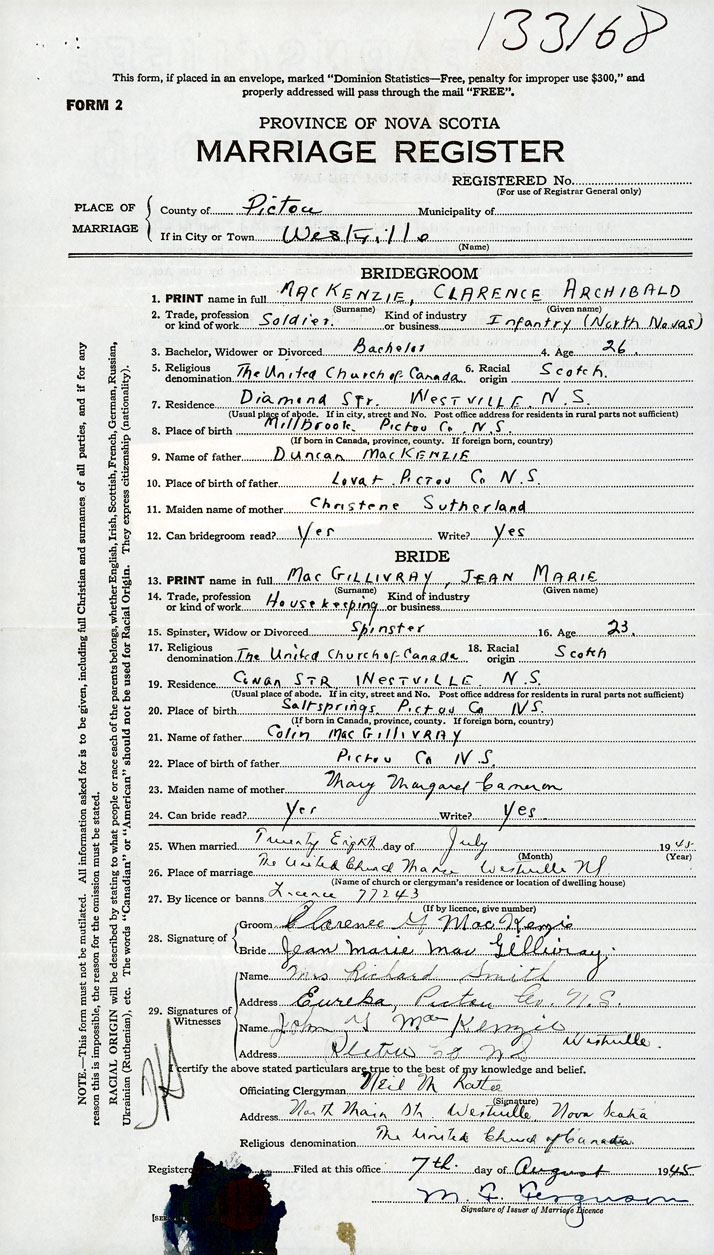 133168
This form, if placed in an envelope, marked "Dominion Statistics—Free, penalty for improper use $300," and
properly addressed will pass through the mail "FREE".
FORM 2
PROVINCE OF NOVA SCOTIA
MARRIAGE REGISTER
REGISTERED No.
(For use of Registrar General only)
PLACE OF MARRIAGE
County of Pictou Municipality of
If in City or Town Westville
(Name)
BRIDEGROOM
1. PRINT name in full MACKENZIE, CLARENCE ARCHIBALD
(Surname) (Given name)
2. Trade, profession or kind of work Soldier. Kind of industry or business Infantry (North Novas)
3. Bachelor, Widower or Divorced Bachelor 4. Age 26.
5. Religious denomination The United Church of Canada 6. Racial origin Scotch.
7. Residence Diamond Str. WESTVILLE, N.S.
(Usual place of abode. If in city, street and No. Post office address for residents in rural parts not sufficient)
8. Place of birth Millbrook Pictou Co. N.S.
(If born in Canada, province, county. If foreign born, country)
9. Name of father DUNCAN MACKENZIE
10. Place of birth of father Lovat Pictou Co N.S.
11. Maiden name of mother Christene Sutherland
12. Can bridegroom read? Yes Write? Yes
BRIDE
13. PRINT name in full MacGILLIVRAY, JEAN MARIE
(Surname) (Given name)
14. Trade, profession or kind of work Housekeeping Kind of industry or business
15. Spinster, Widow or Divorced Spinster 16. Age 23.
17. Religious denomination The United Church of Canada 18. Racial origin Scotch
19. Residence Cowan STR, WESTVILLE N.S.
(Usual place of abode. If in city, street and No. Post office address for residents in rural parts not sufficient)
20. Place of birth Saltsprings Pictou Co N.S.
(If born in Canada, province, county. If foreign born, country)
21. Name of father Colin MacGILLIVRAY
22. Place of birth of father Pictou Co N.S.
23. Maiden name of mother Mary Margaret Cameron
24. Can bride read? Yes Write? Yes
25. When married Twenty Eighth day of July 1945
(Month) (Year)
26. Place of marriage The United Church Manse Westville NS
(Name of church or clergyman's residence or location of dwelling house)
27. By licence or banns Licence 77243
(If by licence, give number)
28. Signature of
Groom Clarence MacKenzie
Bride Jean Marie MacGillivray.
29. Signatures of Witnesses
Name Mrs Richard Smith
Address Eureka, Pictou Co. N.S.
Name John MacKenzie
Address Pictou Co NS Westville.
I certify the above stated particulars are true to the best of my knowledge and belief.
Officiating Clergyman Neil M
(Signature)
Address North Main Str. Westville Nova Scotia
Religious denomination The United Church of Canada
Registere Filed at this office 7th. day of August 1945
M. F. Ferguson
Signature of Issuer of Marriage Licence
[SEE
NOTE.—This form must not be mutilated. All information asked for is to be given, including full Christian and surnames of all parties, and if for any
reason this is impossible, the reason for the omission must be stated.
RACIAL ORIGIN will be described by stating to what people or race each of the parents belongs, whether English, Irish, Scottish, French, German, Russian,
Ukrainian (Ruthenian), etc. The words "Canadian" or "American" should not be used for Racial Origin. They express citizenship (nationality).